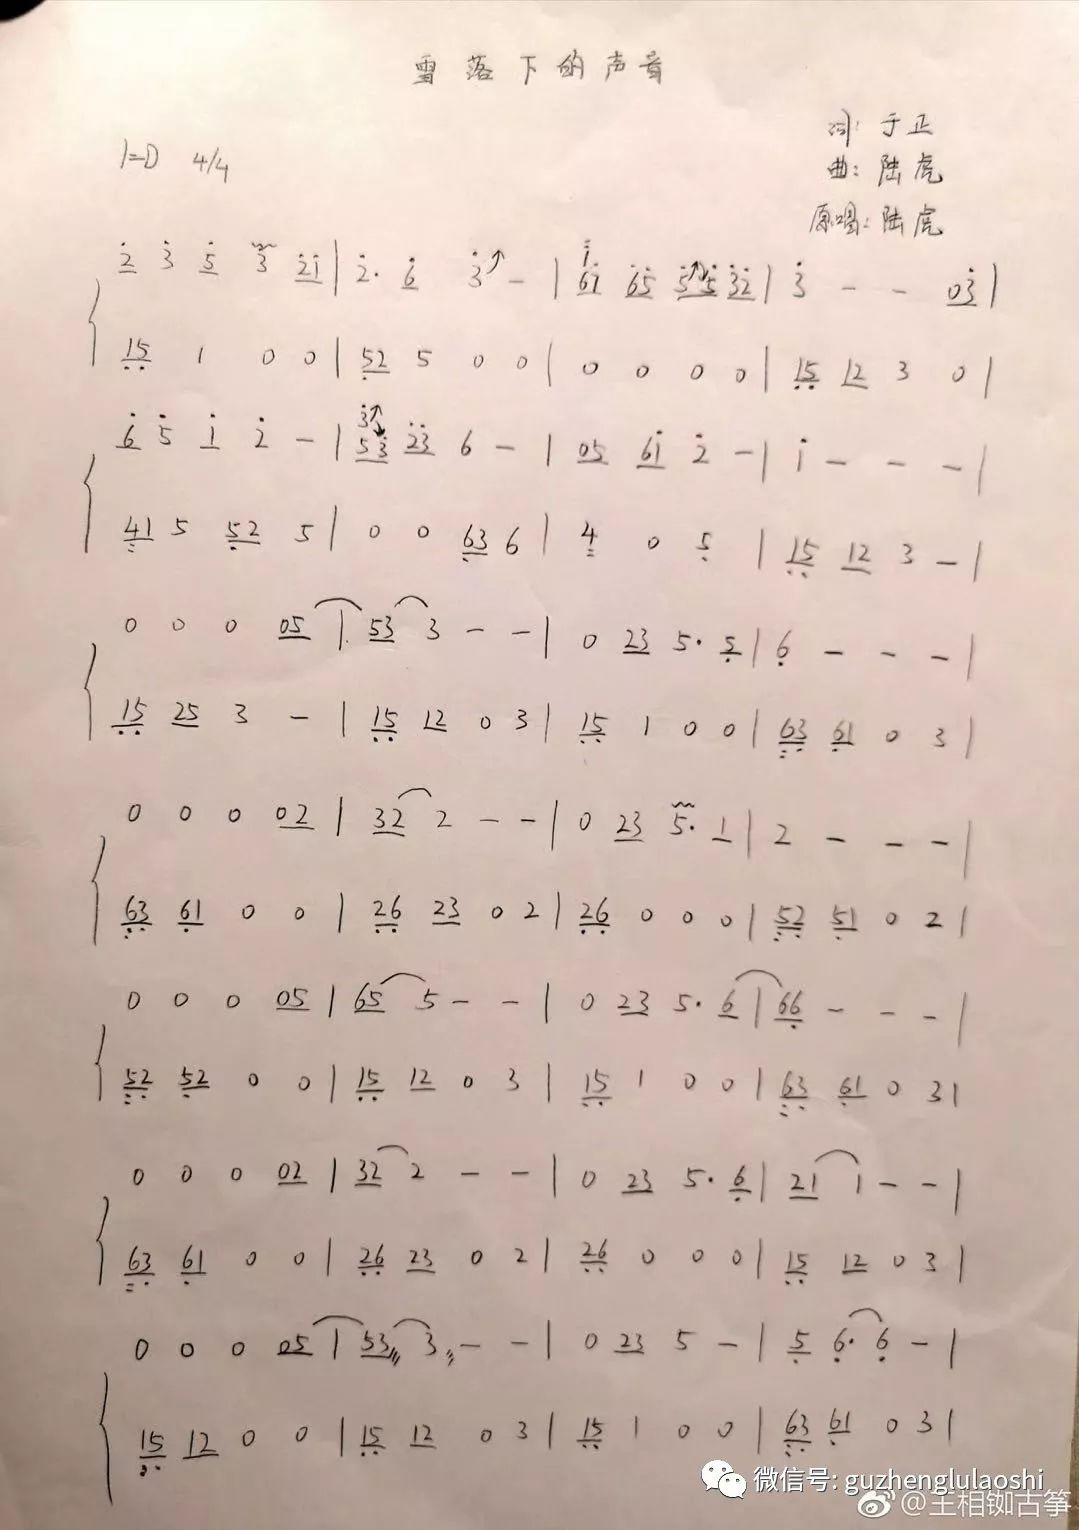 雪落下的声音
词: 于正
1=D 4/4
曲: 陆虎
原唱: 陆虎
2̇ 3̇ 5̇ 3̇ 2̇1̇ | 2̇· 6̇ 3̇ - | 6̇1̇ 6̇5̇ 5̇5̇ 3̇2̇ | 3̇ - - 03̇ |
15 1 0 0 | 52 5 0 0 | 0 0 0 0 | 15 12 3 0 |
6̇ 5̇ 1̇ 2̇ - | 53̇ 2̇3̇ 6 - | 05 61̇ 2̇ - | 1̇ - - - |
41 5 52 5 | 0 0 63 6 | 4 0 5 | 15 12 3 - |
0 0 0 05 | 53 3 - - | 0 23 5· 5 | 6 - - - |
15 25 3 - | 15 12 0 3 | 15 1 0 0 | 63 61 0 3 |
0 0 0 02 | 32 2 - - | 0 23 5· 1 | 2 - - - |
63 61 0 0 | 26 23 0 2 | 26 0 0 0 | 52 51 0 2 |
0 0 0 05 | 65 5 - - | 0 23 5· 6 | 66 - - - |
52 52 0 0 | 15 12 0 3 | 15 1 0 0 | 63 61 0 3 |
0 0 0 02 | 32 2 - - | 0 23 5· 6 | 21 1 - - |
63 61 0 0 | 26 23 0 2 | 26 0 0 0 | 15 12 0 3 |
0 0 0 05 | 53 3 - - | 0 23 5 - | 5 6· 6 - |
15 12 0 0 | 15 12 0 3 | 15 1 0 0 | 63 61 0 3 |
微信号: guzhenglulaoshi
@王相铷古筝